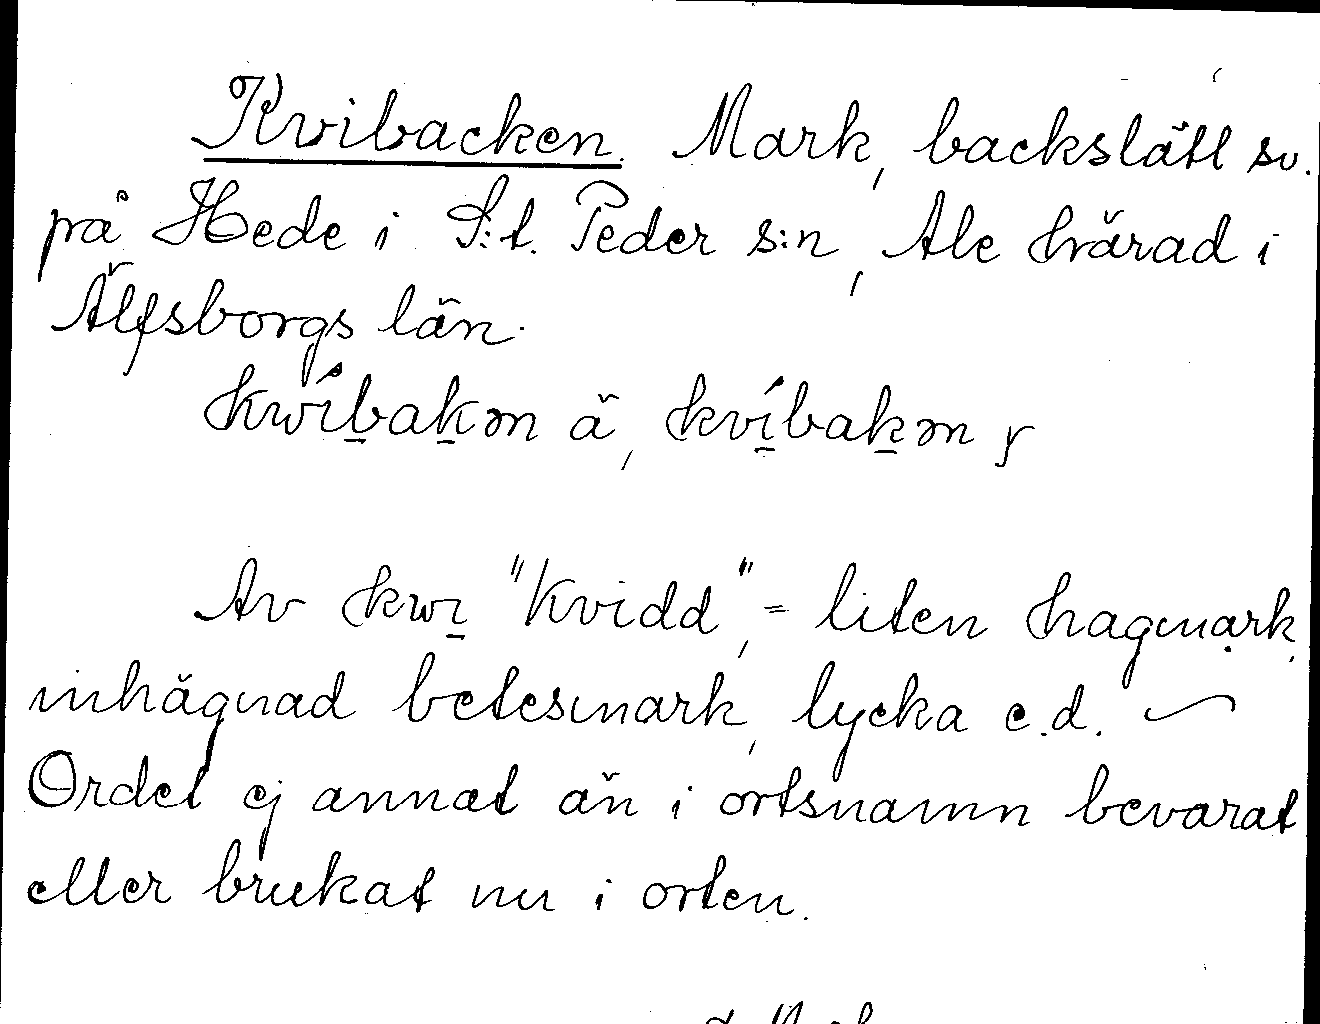 Kvibacken. Mark, backslätt sv.
på Hede i S:t. Peder s:n, Ale härad i
Älfsborgs län.
kwíbakən ä, kvíbakən y
Av kwi "Kvidd", = liten hagmark,
inhägnad betesmark, lycka e.d. ~
Ordet ej annat än i ortsnamn bevarat
eller brukat nu i orten.